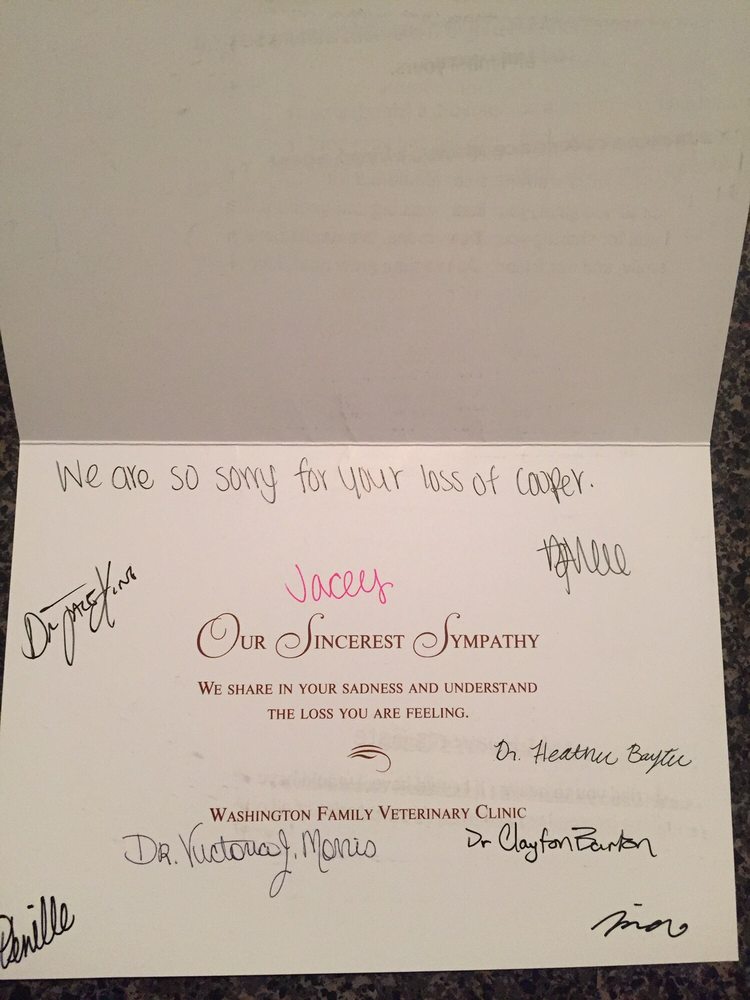 We are so sorry for your loss of Cooper.
Jacey
Dr. Jake King
OUR SINCEREST SYMPATHY
WE SHARE IN YOUR SADNESS AND UNDERSTAND
THE LOSS YOU ARE FEELING.
Dr. Heather Baxter
WASHINGTON FAMILY VETERINARY CLINIC
DR. Victoria J. Morris
Dr Clayton Barton